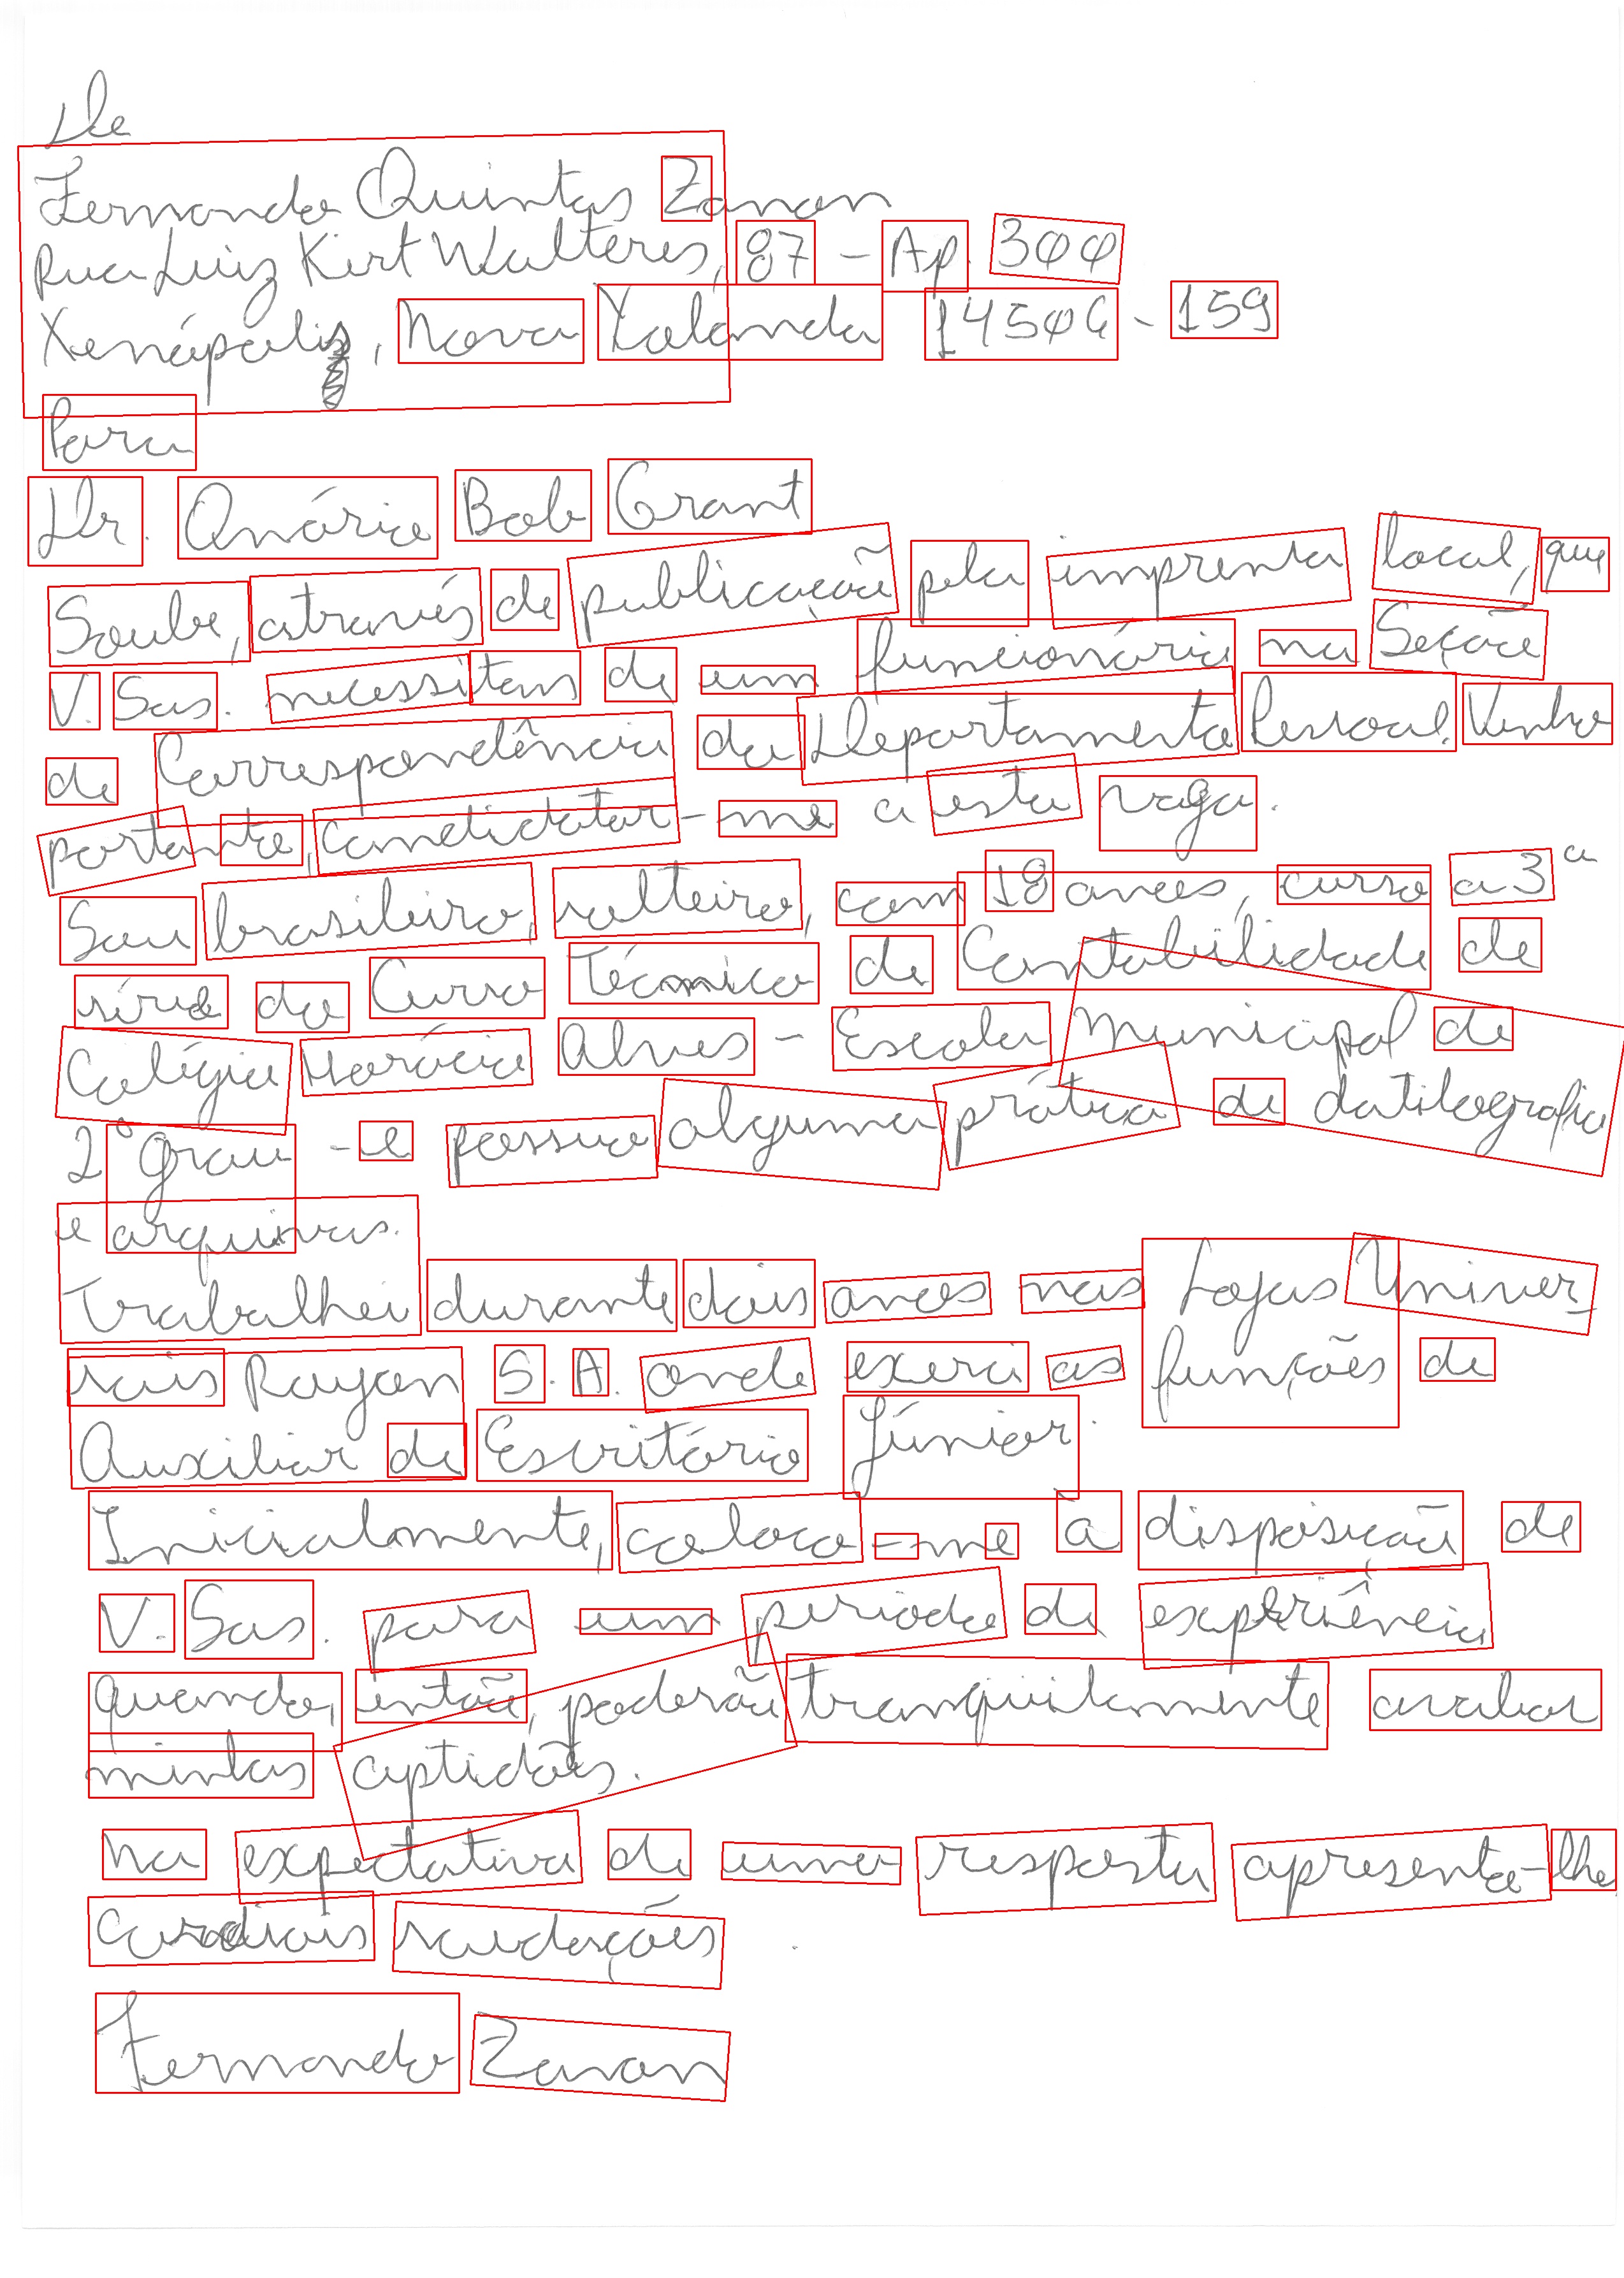 De
Fernando Quintas Zanon
Rua Luiz Kirt Walteres, 87 - Ap. 300
Xenápolis, Nova Yolanda 14506 - 159
Para
Dr. Onório Bob Grant
Soube, através de publicação pela imprensa local, que
V. Sas. necessitam de um funcionário na Seção
de Correspondência do Departamento Pessoal. Venho
portanto, candidatar-me a esta vaga.
Sou brasileiro, solteiro, com 18 anos, curso a 3ª
série do Curso Técnico de Contabilidade do
Colégio Horácio Alves - Escola Municipal de
2º grau - e possuo alguma prática de datilografia
e arquivos.
Trabalhei durante dois anos nas Lojas Univer-
sais Rayon S.A. onde exerci as funções de
Auxiliar de Escritório Júnior.
Inicialmente, coloco-me à disposição de
V. Sas. para um período de experiência
quando, então, poderão tranquilamente avaliar
minhas aptidões.
Na expectativa de uma resposta apresento-lhe
cordiais saudações
Fernando Zanon